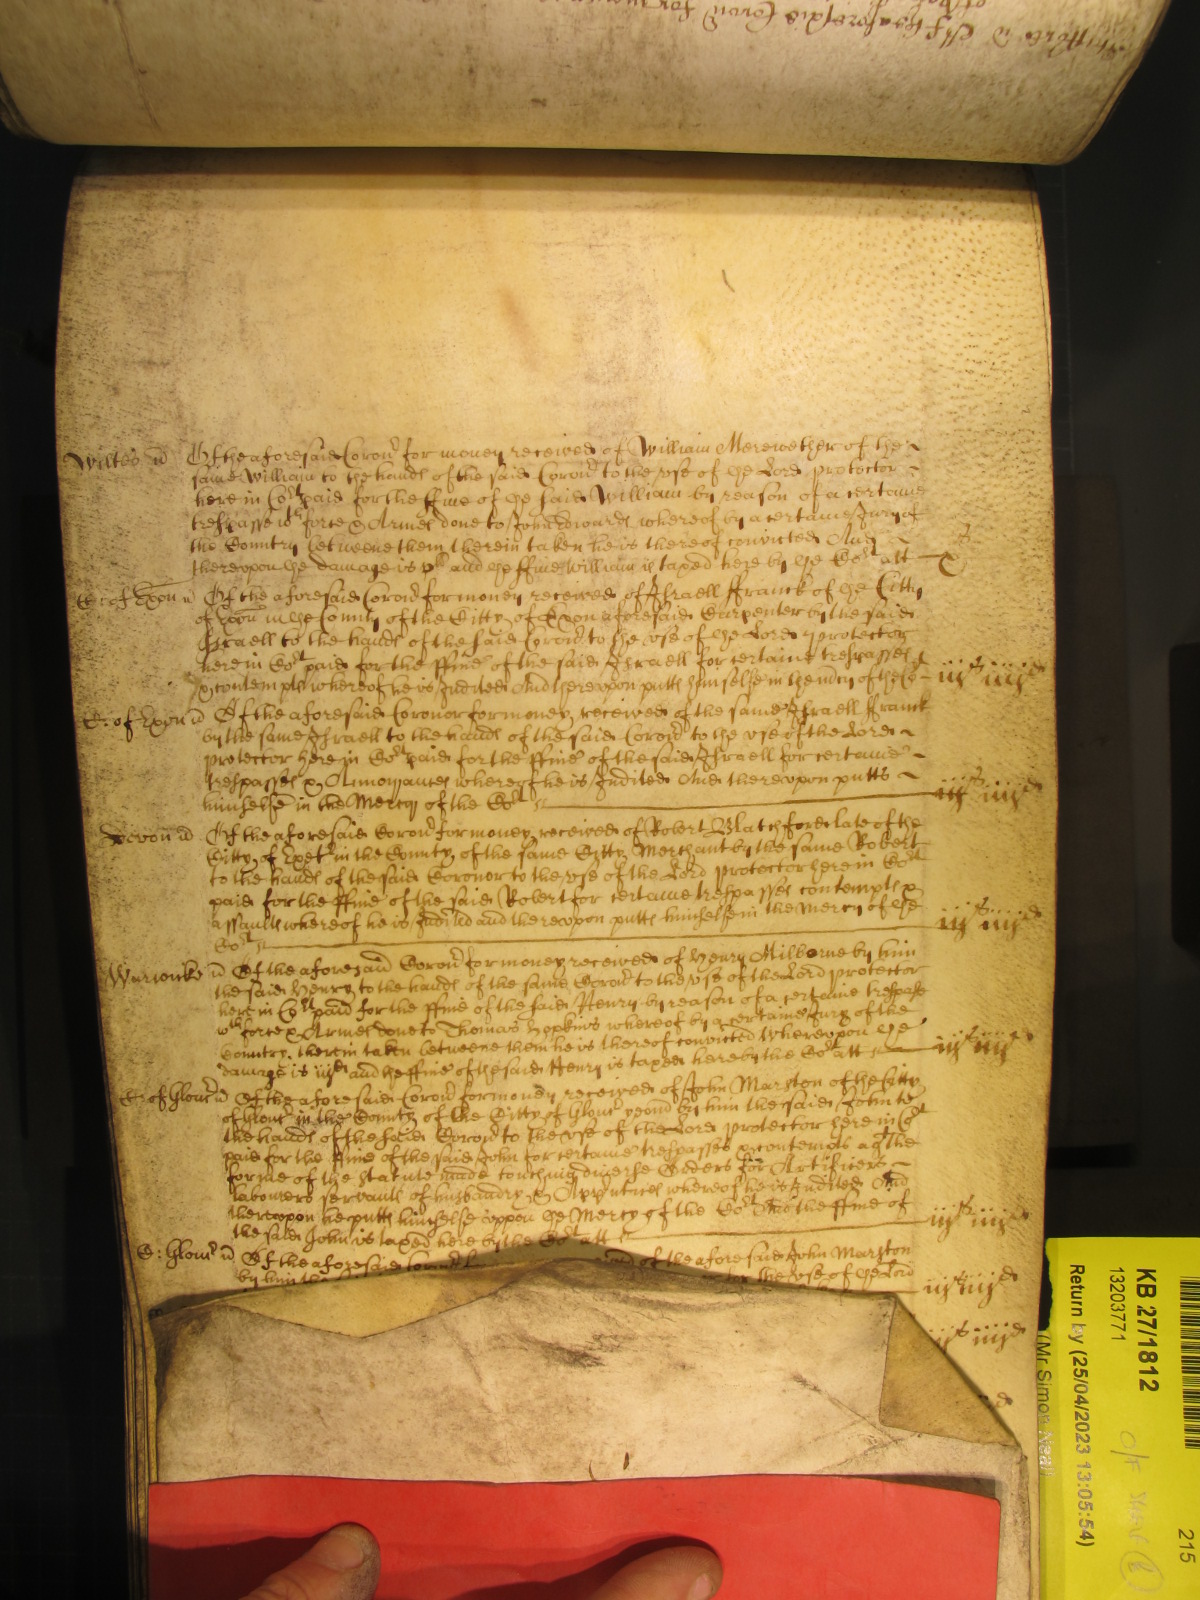 Wiltes Of the aforesaid Coron' for money received of William Merewether of the
same William to the hands of the said Coron' to the vse of ye Lord protector
here in Cort paid for the ffine of ye said William by reason of a certaine
trespasse wth force & Armes done to John Edwards whereof by a certaine Jury of
the Country betweene them therein taken he is thereof convicted And
therevpon ye damage is and ye ffine William is taxed here by ye Cort att x s
C: of Exon Of the aforesaid Coron' for money received of Israell ffranck of ye Citty
of Exon in ye County of the Citty of Exon aforesaid Carpenter by the said
Israell to the hands of the said Coron' to the vse of ye Lord protector
here in Cort paid for the ffine of the said Israell for certaine trespasses
& contempts whereof he is Indited And herevpon putts himselfe in the mercy of the Cort iij s iiij d
C: of Exon Of the aforesaid Coronor for money received of the same Israell ffranck
by the same Israell to the hands of the said Coron' to the vse of the Lord
protector here in Cort paid for the ffine of the said Israell for certaine
trespasses & Annoyances whereof he is Indited And therevpon putts
himselfe in the Mercy of the Cort iij s iiij d
Devon Of the aforesaid Coron' for money received of Robert Blatchford late of the
Citty of Exet' in the County of the same Citty Merchant by the same Robert
to the hands of the said Coronor to the vse of the Lord protector here in Cort
paid for the ffine of the said Robert for certaine trespasses contempts &
assaults whereof he is Indited and therevpon putts himselfe in the Mercy of ye
Cort iij s iiij d
Warwicke Of the aforesaid Coron' for money received of Henry Milborne by him
the said Henry to the hands of the same Coron' to the vse of the Lord protector
here in Cort paid for the ffine of the said Henry by reason of a certaine trespasse
wth force & Armes done to Thomas Hopkins whereof by a certaine Jury of the
Country therein taken betweene them he is thereof convicted Wherevpon ye
damage is and the ffine of the said Henry is taxed here by the Cort att iij s iiij d
C: of Glouc' Of the aforesaid Coron' for money received of John Marston of the Citty
of Glouc' in the County of the Citty of Glouc' yeom' by him the said John to
the hands of the said Coron' to the vse of the Lord protector here in Cort
paid for the ffine of the said John for certaine trespasses & contempts agt the
forme of the Statute made touching diverse Orders for Artificers
labourers servants of husbandry & Apprentices whereof he is Indited And
therevpon he putts himselfe vppon ye Mercy of the Cort And the ffine of
the said John is taxed here by the Cort att iij s iiij d
C: Glouc' Of the aforesaid of the aforesaid John Marston
by him the vse of ye Lord
iij s iiij d
iij s iiij d
d
KB 27/1812
13203771
Return by (25/04/2023 13:05:54)
(Mr Simon Neal)
215